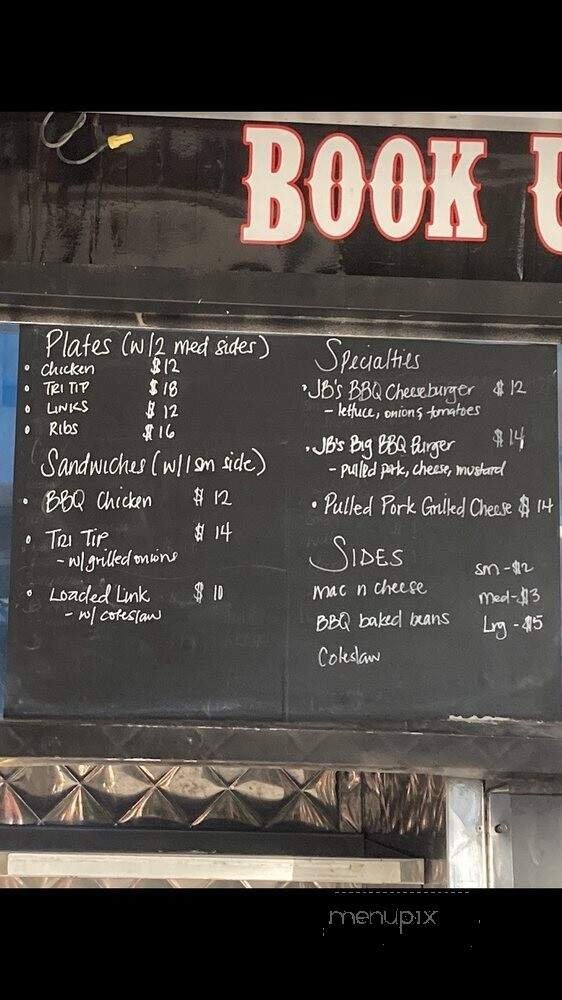 BOOK U
Plates (w/2 med sides)
• Chicken $12
• TRI TIP $18
• LINKS $12
• Ribs $16
Sandwiches (w/1 sm side)
• BBQ Chicken $12
• TRI TIP $14
- w/grilled onions
• Loaded Link $10
- w/ coleslaw
Specialties
• JB's BBQ Cheeseburger $12
- lettuce, onions, tomatoes
• JB's Big BBQ Burger $14
- pulled pork, cheese, mustard
• Pulled Pork Grilled Cheese $14
SIDES
sm-$2
mac n cheese
med-$3
BBQ baked beans
Lrg-$5
Coleslaw
menupix